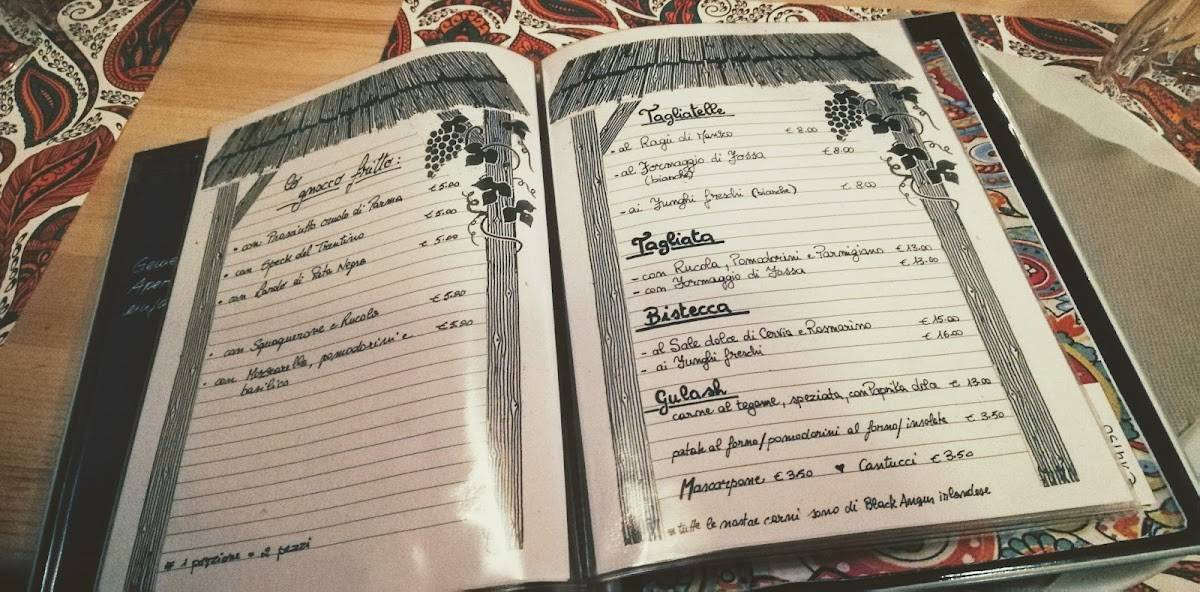 Lo
gnocco fritto:
• con Prosciutto crudo di Parma € 5.00
• con Speck del Trentino € 5.00
• con Lardo di Pata Negra € 5.00
• con Squaquerone e Rucola € 5.00
• con Mozzarella, pomodorini e € 5.00
basilico
* 1 porzione = 2 pezzi
Tagliatelle
- al Ragù di Manzo € 8.00
- al Formaggio di Fossa € 8.00
(bianche)
- ai Funghi freschi (bianche) € 8.00
Tagliata
- con Rucola, Pomodorini e Parmigiano € 13.00
- con Formaggio di Fossa € 13.00
Bistecca
- al Sale dolce di Cervia e Rosmarino € 15.00
- ai Funghi freschi € 16.00
Gulash
carne al tegame, speziata, con Paprika dolce € 13.00
patate al forno/pomodorini al forno/insalata € 3.50
Mascarpone € 3.50 ♥ Cantucci € 3.50
* tutte le nostre carni sono di Black Angus irlandese